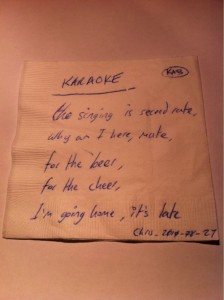 KARAOKE
the singing is second rate,
why am I here, mate,
for the beer,
for the cheer,
I'm going home, it's late
Chris